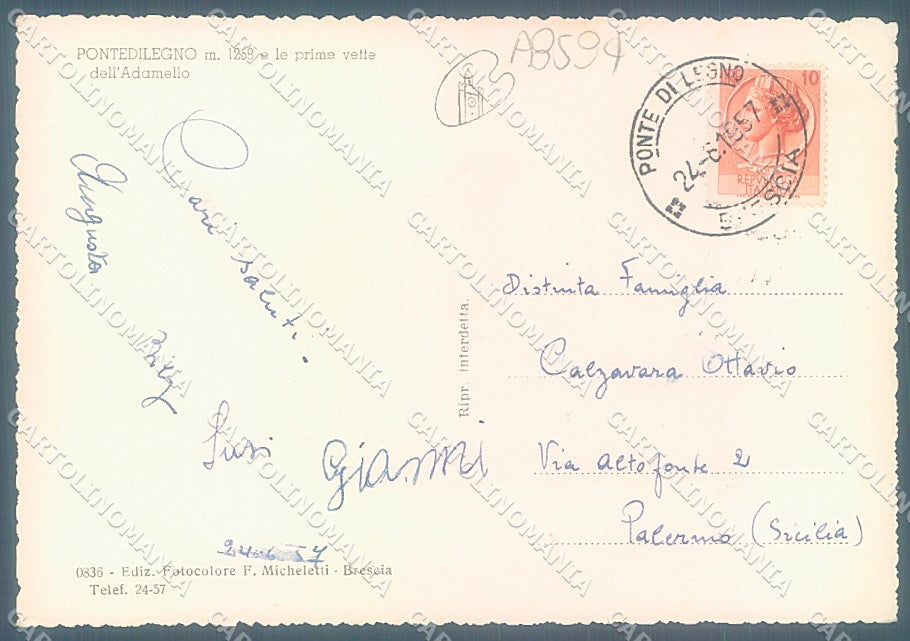 PONTEDILEGNO m. 1258 e le prime vette
dell'Adamello
A8594
PONTE DI LEGNO
24.6.1957
BRESCIA
10
REPUBBLICA
ITALIANA
Cari saluti.
Augusta
Susi
Gianni
24-6-57
Distinta Famiglia
Calzavara Ottavio
Via Altofonte 2
Palermo (Sicilia)
Ripr interdetta.
0836 - Ediz. Fotocolore F. Micheletti - Brescia
Telef. 24-57
CARTOLINOMANIA